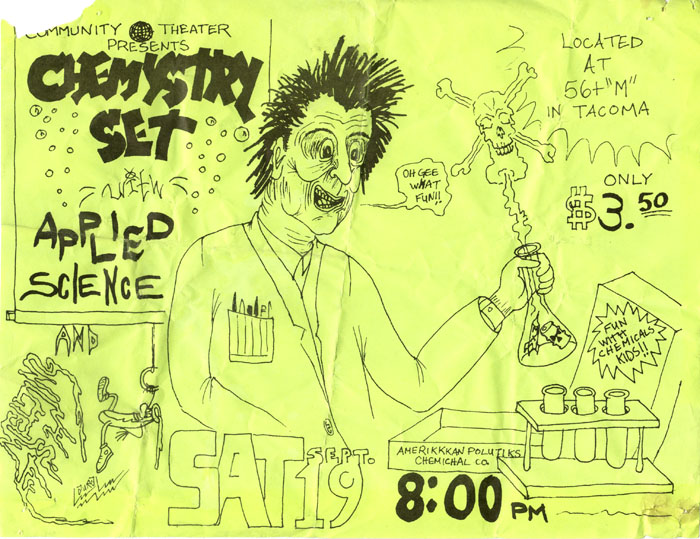 COMMUNITY THEATER
PRESENTS
CHEMYSTRY
SET
WITH
APPLIED
SCIENCE
AND
OH GEE
WHAT
FUN!!
LOCATED
AT
56+"M"
IN TACOMA
ONLY
$3.50
FUN
WITH
CHEMICALS
KIDS!!
AMERIKKKAN POLUTIKS
CHEMICHAL CO
SAT SEPT. 19
8:00 PM